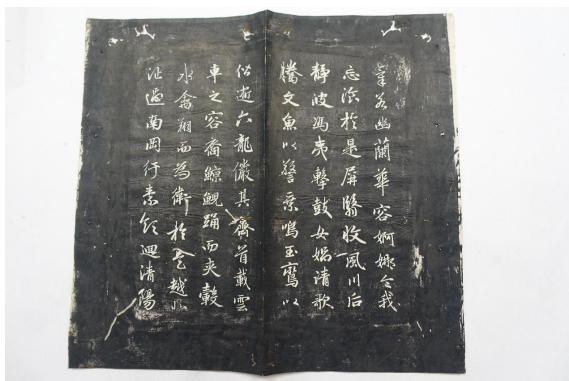 氣若幽蘭華容婀娜令我
忘飡於是屏翳收風川后
靜波馮夷擊鼓女媧清歌
騰文魚以警乘鳴玉鸞以
偕逝六龍儼其齊首載雲
車之容裔鯨鯢踊而夾轂
水禽翔而為衛於是越北
沚過南岡紆素領迴清陽